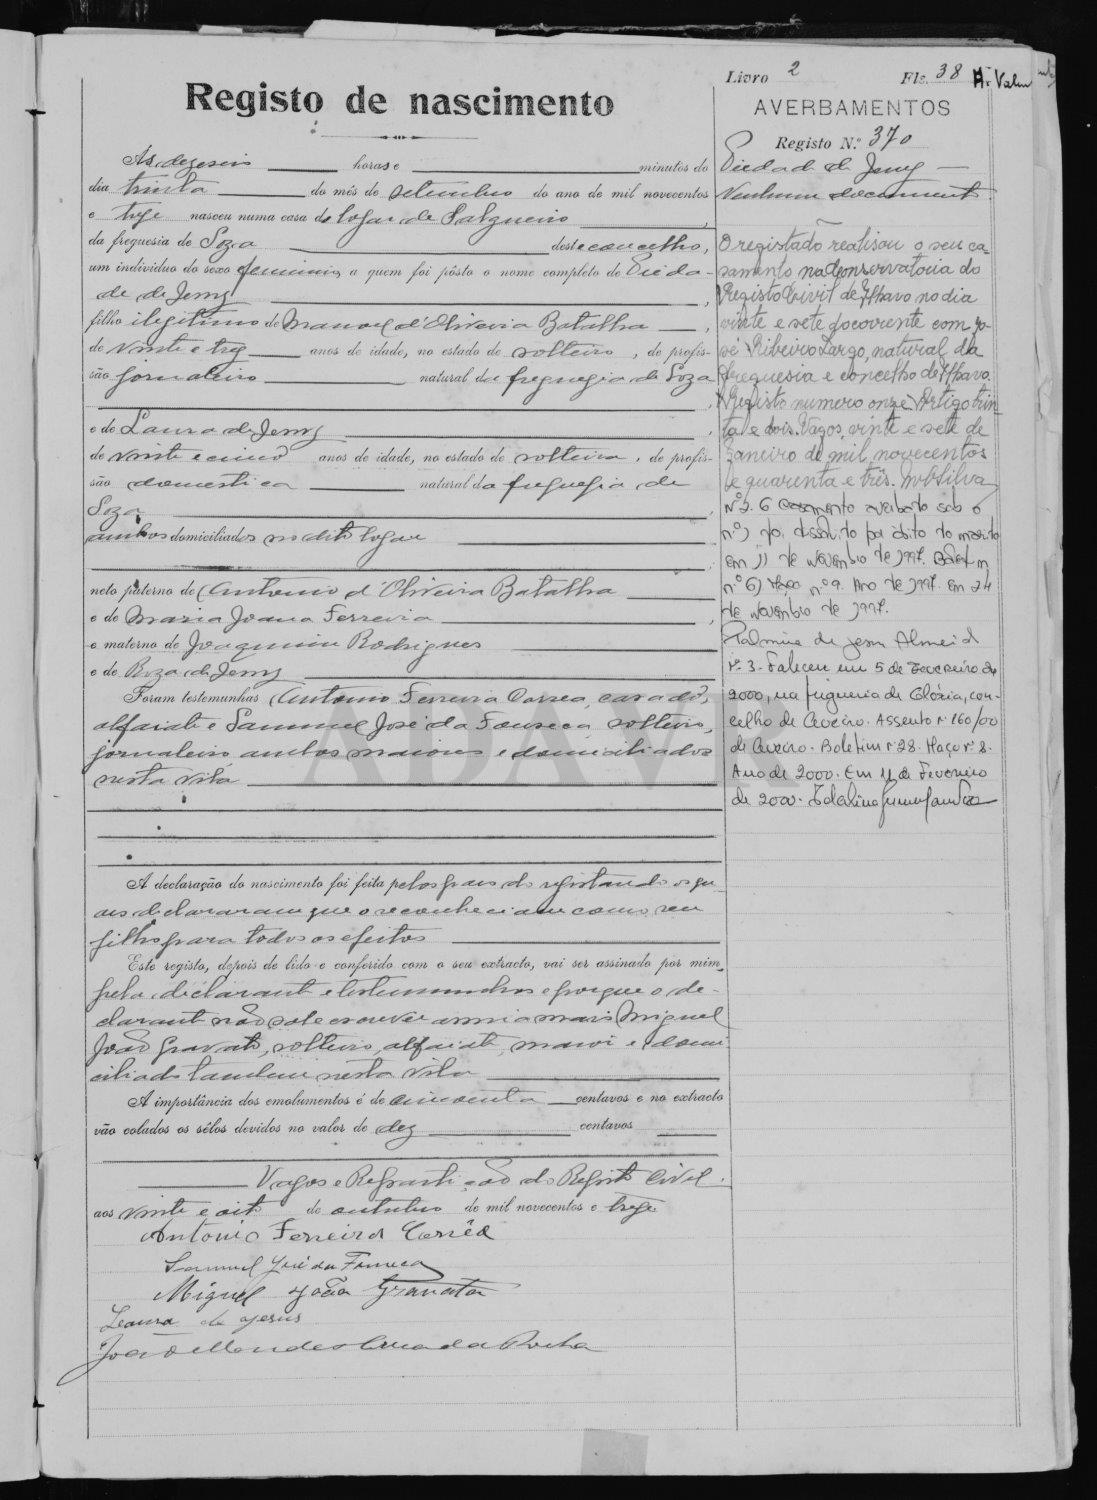 Livro 2 Fls. 38
Registo de nascimento
AVERBAMENTOS
Registo N.º 370
Às dezeseis horas e minutos do
dia trinta do mês de setembro do ano de mil novecentos
e treze nasceu numa casa do logar de Salgueiro,
da freguesia de Soza deste concelho,
um individuo do sexo feminino a quem foi pôsto o nome completo de Pieda-
de de Jesus,
filho ilegitimo de Manoel d'Oliveira Batalha,
de vinte e trez anos de idade, no estado de solteiro, de profis-
são jornaleiro natural da freguezia de Soza
,
e de Laura de Jesus,
de vinte e cinco anos de idade, no estado de solteira, de profis-
são domestica natural da freguezia de
Soza,
ambos domiciliados no dito logar
neto paterno de Antonio d'Oliveira Batalha
e de Maria Joana Ferreira,
e materno de Joaquim Rodrigues
e de Roza de Jesus
Foram testemunhas Antonio Ferreira Correa, casado,
alfaiate e Sammuel José da Fonseca, solteiro,
jornaleiro ambos maiores e domiciliados
nesta vila
A declaração do nascimento foi feita pelos paes do registando os qu-
aes declararam que o reconheciam como seu
filho para todos os efeitos
Este registo, depois de lido e conferido com o seu extracto, vai ser assinado por mim,
pela declarante e testemunhas e porque o de-
clarante não sabe escrever assina mais Miguel
João Gravato, solteiro, alfaiate, maior e domi
ciliado tambem nesta vila
A importância dos emolumentos é de cincoenta centavos e no extracto
vão colados os sêlos devidos no valor de dez centavos
Vagos e Repartição do Registo Civil.
aos vinte e oito de outubro de mil novecentos e treze
Antonio Ferreira Corrêa
Samuel José da Fonseca
Miguel João Gravato
Leaura de Jesus
João Mendes Correa da Rocha
Piedade de Jesus
Nenhum documento
O registado realisou o seu ca-
samento na Conservatoria do
Registo Civil de Ilhavo no dia
vinte e sete do corrente com Jo-
sé Ribeiro Largo, natural da
freguesia e concelho de Ilhavo.
Registo numero onze. Artigo trin-
ta e dois. Vagos, vinte e sete de
Janeiro de mil novecentos
e quarenta e três.
Nº 2. O casamento averbado sob o
nº 1 foi dissolvido por óbito do marido
em 11 de Novembro de 1997. Boletim
nº 61 Maço nº 9. Ano de 1997. Em 24
de Novembro de 1997.
Palmira de Jesus Almeida
Nº 3. Faleceu em 5 de Fevereiro de
2000, na freguesia da Glória, con-
celho de Aveiro. Assento nº 160/00
de Aveiro. Boletim nº 28. Maço nº 8.
Ano de 2000. Em 11 de Fevereiro
de 2000.
ADAVR